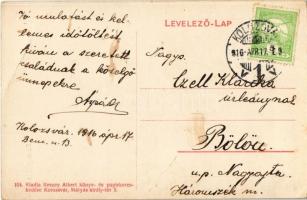 LEVELEZŐ-LAP
KOLOZSVÁR
916 APR. 17
Jó mulatást és kel-
lemes időtöltést
kíván a szeretett
családnak a közelgő
ünnepekre
Kolozsvár. 1916 ápr. 17.
Nagys.
Czell Klárika
úrleánynak
Bölön
u.p. Nagyajta
Háromszék m.
104. Kiadja Keszey Albert könyv- és papirkeres-
kedése Kolozsvár, Mátyás király-tér 3.